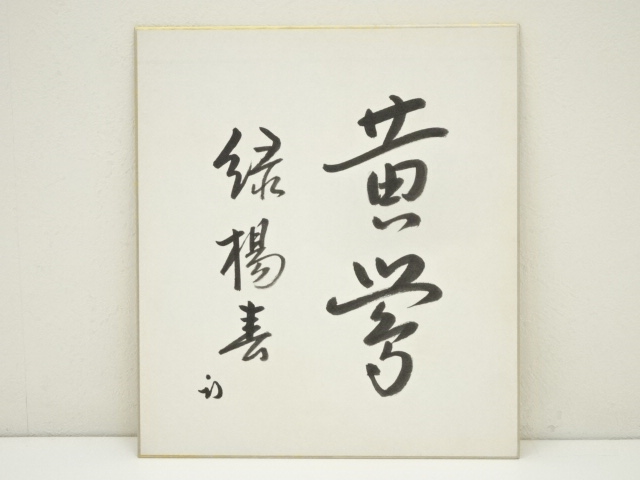 黄鶯
緑楊春